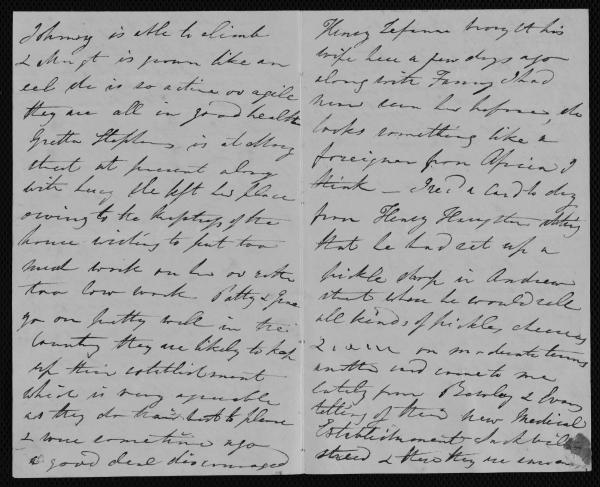 Johnny is able to climb
& Margt is grown like an
eel she is so active or agile
they are all in good health
Gretta Stephens is at Mary
street at present along
with Lucy she left her place
owing to the mistress of the
house wishing to put too
much work on her or rather
too low work Patty & Jane
go on pretty well in the
country they are likely to keep
up their establishment
which is very agreeable
as they do their best to please
& were sometime ago
a good deal discouraged
Henry Lefanu brought his
wife here a few days ago
along with Fanny I had
never seen her before, she
looks something like a
foreigner from Africa I
think — I recd a card to day
from Henry Haughton stating
that he had set up a
pickle shop in Andrew
street where he would sell
all kinds of pickles, cheeses
& on moderate terms
another card came to me
lately from Bewley & Evans
telling of their new Medical
Establishment Sackville
street & there they are